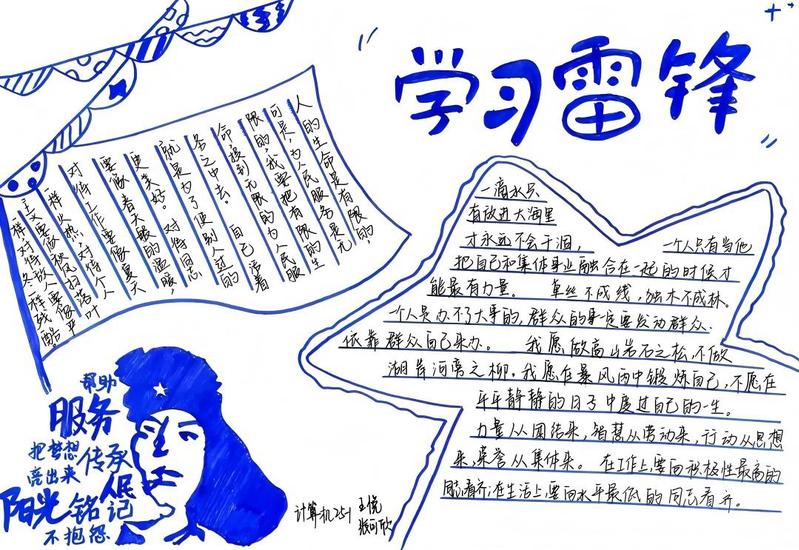 “学习雷锋”
人的生命是有限的,
可是,为人民服务是无
限的,我要把有限的生
命,投到无限的为人民服
务之中去。自己活着
就是为了使别人过的
更美好。对待同志
要像春天般的温暖,
对待工作要像夏天
一样火热,对待个人
主义要像秋风扫落叶
一样对待敌人要像严
冬一样残酷
一滴水只
有放进大海里
才永远不会干涸, 一个人只有当他
把自己和集体事业融合在一起的时候才
能最有力量。 单丝不成线,独木不成林。
一个人是办不了大事的,群众的事一定要发动群众、
依靠群众自己来办。 我愿做高山岩石之松,不做
湖岸河旁之柳。我愿在暴风雨中锻炼自己,不愿在
平平静静的日子中度过自己的一生。
力量从团结来,智慧从劳动来,行动从思想
来,荣誉从集体来。 在工作上,要向积极性最高的
同志看齐,在生活上,要向水平最低的同志看齐。
帮助
服务
把梦想
亮出来
传承
人民
阳光
铭记
不抱怨
计算机251
王悦
张可欣